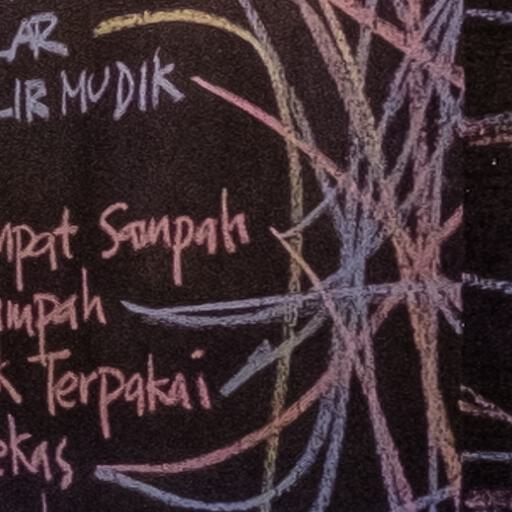 AR
LIR MUDIK
mpat Sampah
ampah
k Terpakai
ekas